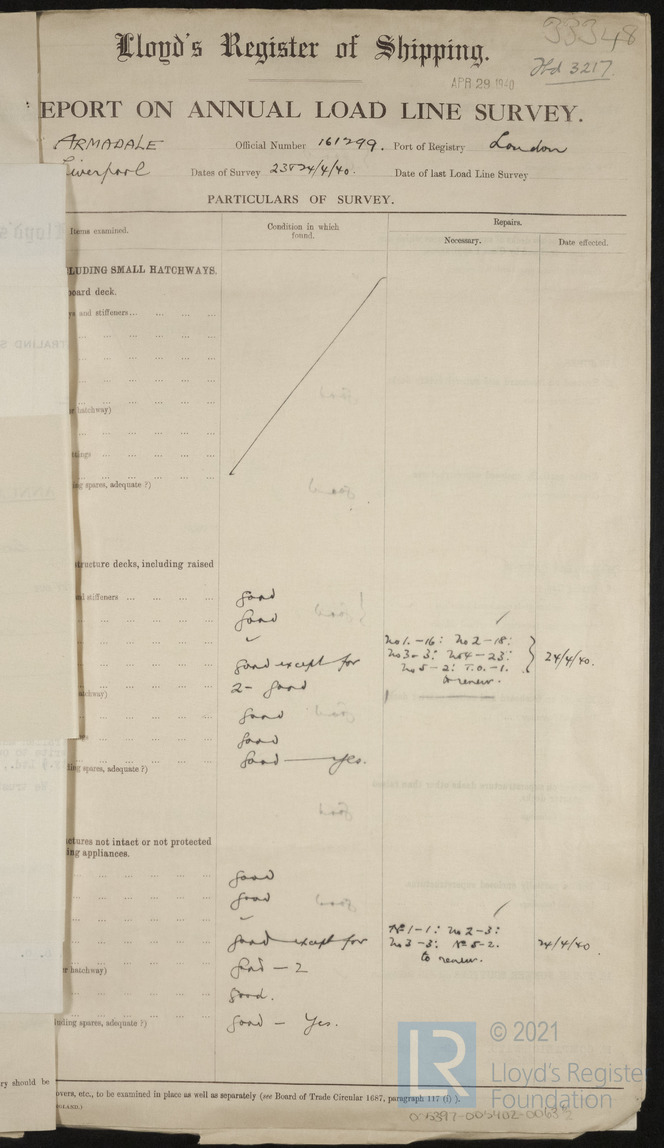 33348
Lloyd's Register of Shipping.
Hbd 3217.
APR 29 1940
EPORT ON ANNUAL LOAD LINE SURVEY.
ARMADALE Official Number 161299. Port of Registry London
Liverpool Dates of Survey 23 & 24/4/40. Date of last Load Line Survey
PARTICULARS OF SURVEY.
Items examined. Condition in which found. Repairs.
Necessary. Date effected.
LUDING SMALL HATCHWAYS.
board deck.
ys and stiffeners... ... ... ...
r hatchway)
ng spares, adequate ?)
structure decks, including raised
d stiffeners ... ... ... ... good
good
No1.-16: No2-18:
No3-3: No4-23: 24/4/40.
good except for No5-2: T.O.-1.
to renew.
2- good
atchway)
good
good
good — Yes.
ing spares, adequate ?)
ctures not intact or not protected
ing appliances.
good
good
No1-1: No2-3:
good except for No3-3: No5-2. 24/4/40.
to renew.
r hatchway) good — 2
good.
luding spares, adequate ?) good — Yes.
ry should be
overs, etc., to be examined in place as well as separately (see Board of Trade Circular 1687, paragraph 117 (i) ).
LR © 2021
Lloyd's Register
Foundation